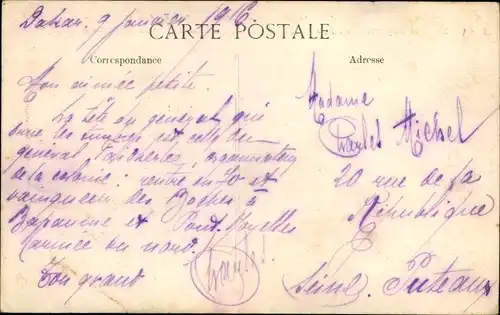 Dakar 9 janvier 1916
CARTE POSTALE
Correspondance
Adresse
Mon aimée petite.
La tête du général qui
orne les est celle du
général Faidherbe, organisateur
de la colonie: en 70 et
vainqueur des Boches à
Bapaume et Pont-Noyelles
(armée du nord).
Ton grand
Charles!
Madame
Charles Michel
20 rue de la
République
Puteaux
Seine.